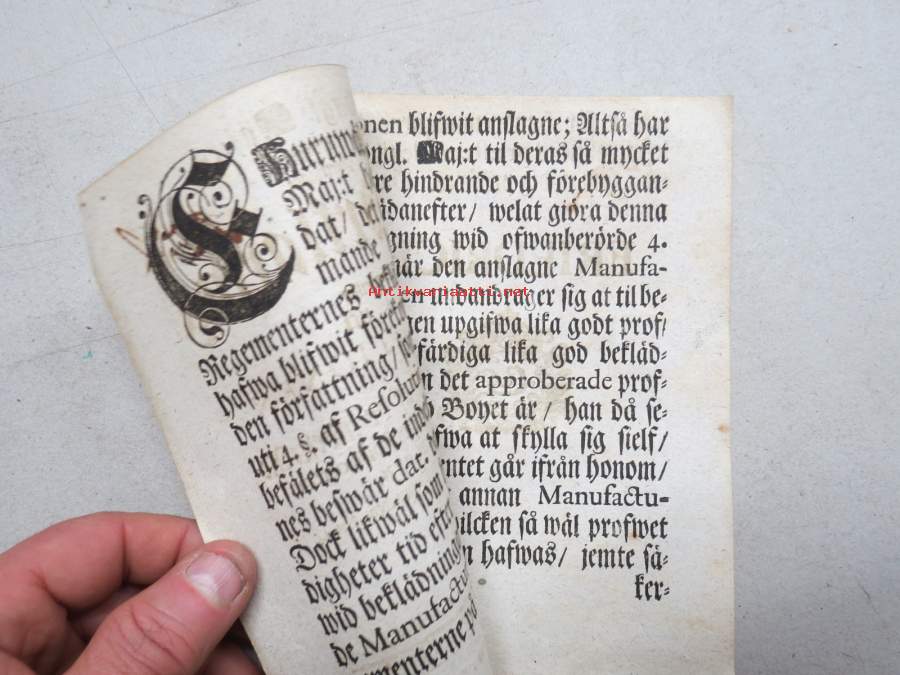 Ehurum
Maj:t
dat/ det
mande
Regementernes
hafwa blifwit före
den författning/
uti 4. §. af Resolut
befälets af de ind
nes beswär dat.
Dock likwäl som
digheter tid efter
wid beklädning
de Manufactu
menterne på
onen blifwit anslagne; Altså har
ongl. Maj:t til deras så mycket
re hindrande och förebyggan-
ådanefter/ welat giöra denna
gning wid ofwanberörde 4.
när den anslagne Manufa-
en undandrager sig at til be-
gen upgifwa lika godt prof/
färdiga lika god bekläd-
n det approberade prof-
Boyet är/ han då se-
fwa at skylla sig sielf/
ntet går ifrån honom/
annan Manufactu-
hilcken så wäl profwet
n hafwas/ jemte sä-
ker-
Antikvariaatti.net